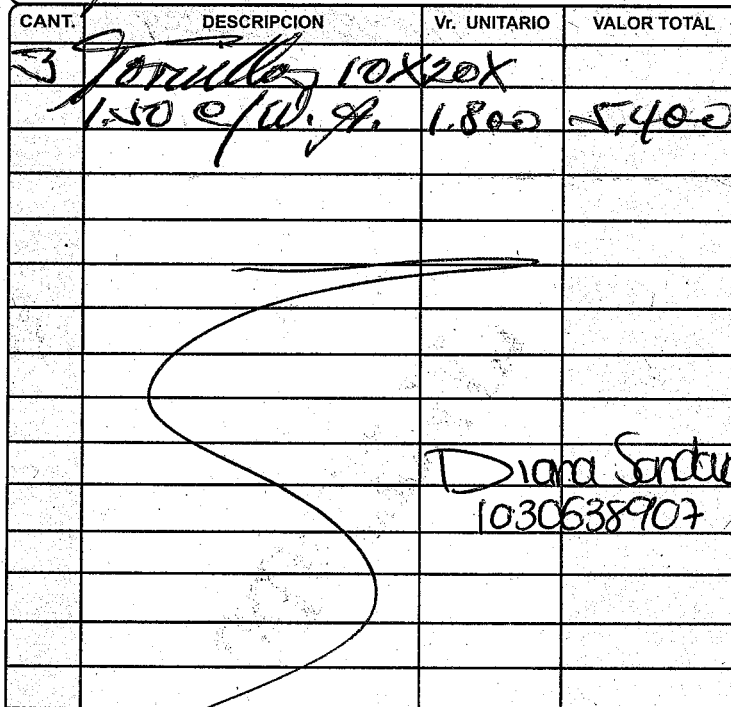 CANT. DESCRIPCION Vr. UNITARIO VALOR TOTAL
3 Tornillos 10X20X
1.50 C/W.A. 1.800 5.400
Diana
1030638907